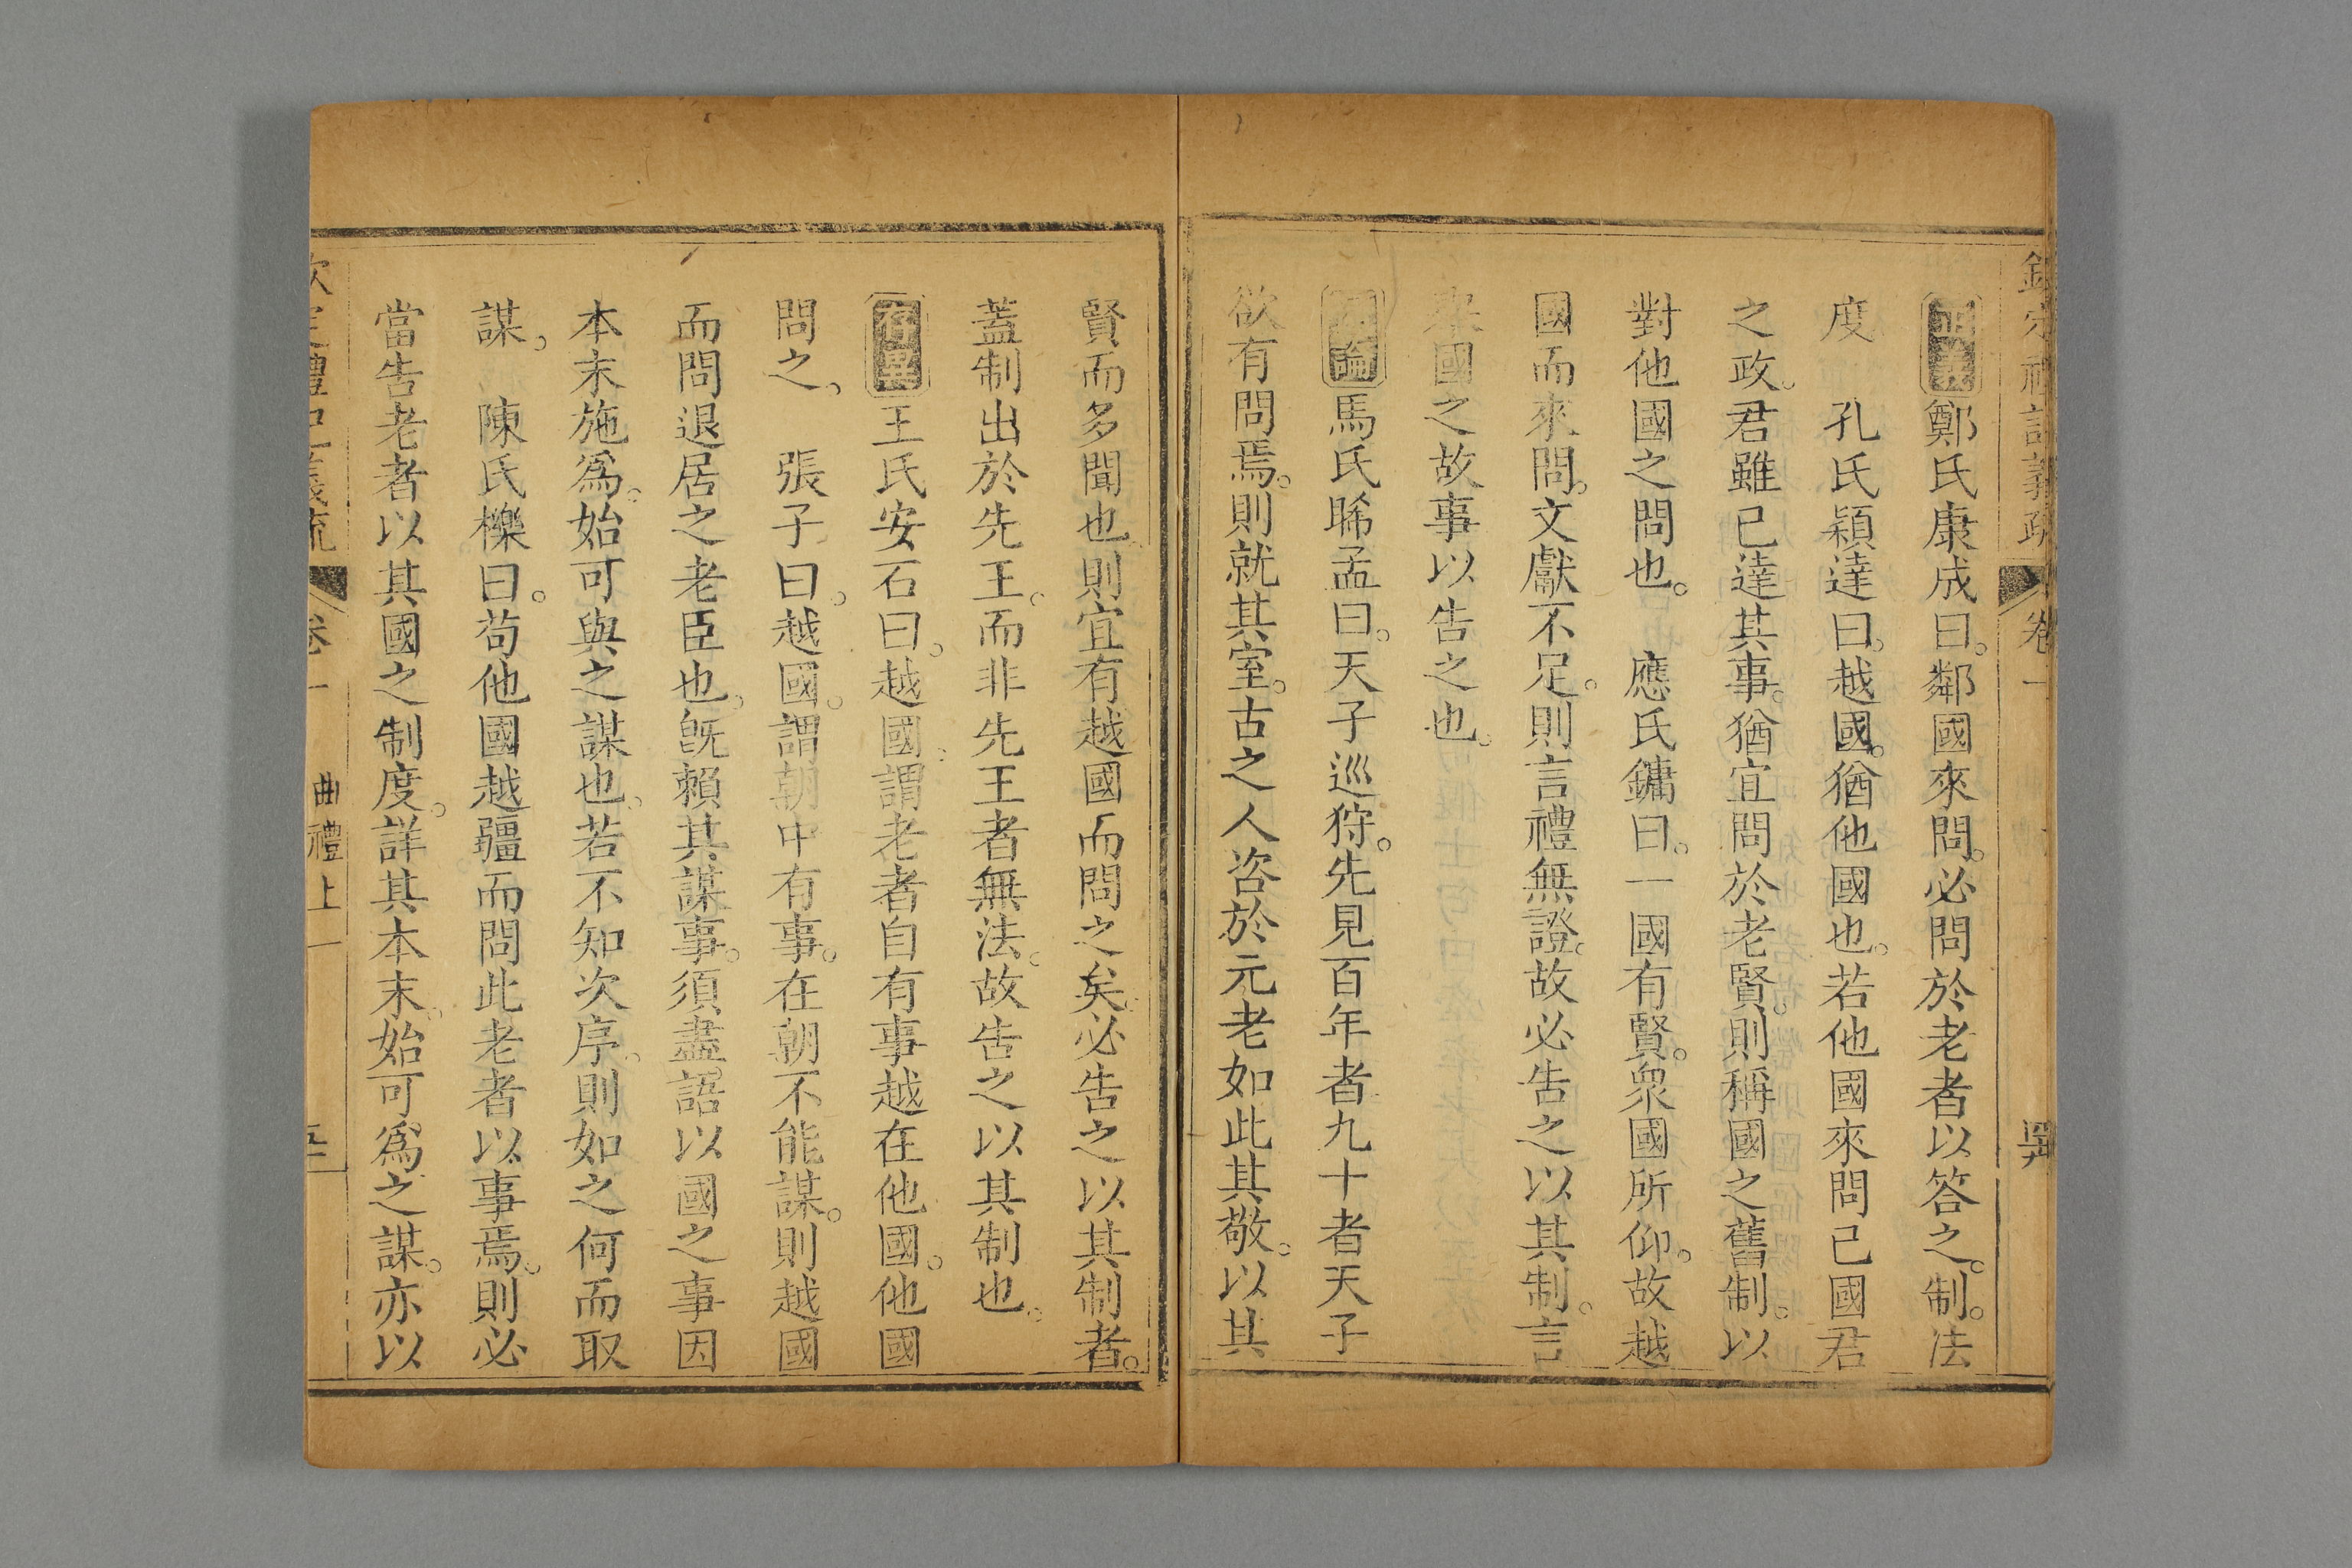 欽定禮記義疏 卷一
正義鄭氏康成曰。鄰國來問。必問於老者以答之。制。法
度　孔氏穎達曰。越國。猶他國也。若他國來問己國君
之政。君雖已達其事。猶宜問於老賢。則稱國之舊制。以
對他國之問也。　應氏鏞曰。一國有賢。衆國所仰。故越
國而來問。文獻不足。則言禮無證。故必告之以其制。言
舉國之故事以告之也。
通論馬氏睎孟曰。天子巡狩。先見百年者九十者天子
欲有問焉。則就其室。古之人咨於元老如此其敬。以其
賢而多聞也。則宜有越國而問之矣。必告之以其制者。
蓋制出於先王。而非先王者無法。故告之以其制也。
存異王氏安石曰。越國。謂老者自有事越在他國。他國
問之。　張子曰。越國。謂朝中有事。在朝不能謀。則越國
而問退居之老臣也。旣賴其謀事。須盡語以國之事因
本末施爲。始可與之謀也。若不知次序。則如之何而取
謀。　陳氏櫟曰。苟他國越疆而問此老者以事焉。則必
當告老者以其國之制度。詳其本末。始可爲之謀。亦以
欽定禮記義疏 卷一 曲禮上